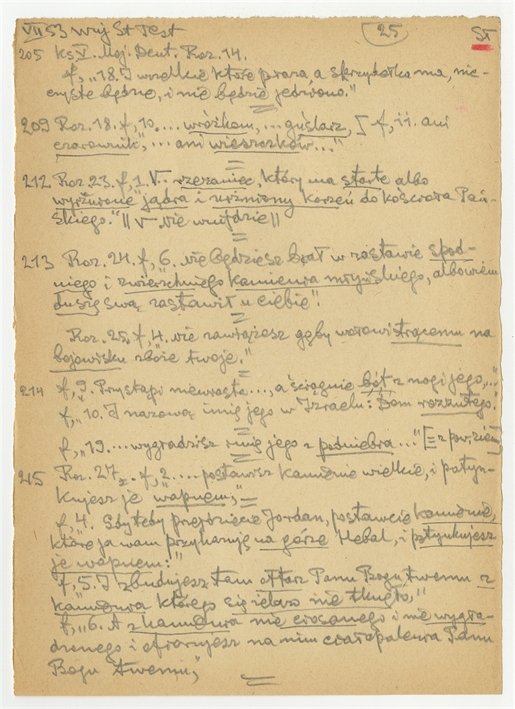 VII 53 Wuj St Test (25) ST
205 Ks V. Moj. Deut. Roz. 14.
f, „18. I wszelkie które pełza, a skrzydełka ma, nie-
czyste będzie, i nie będzie jedzione."
209 Roz. 18. f, 10. ... wróżkom, ... guślarz, f, 11. ani
czarownik", ... ani wieszczków..."
212 Roz. 23. f, 1. V. rzezaniec, który ma starte albo
wyrżnione jądra i urżniony korzeń do kościoła Pań-
skiego." || V nie wnijdzie ||
213 Roz. 24. f, 6. nie będziesz brał w zastawie spod-
niego i zwierzchniego kamienia młyńskiego, albowiem
duszę swą zastawił u ciebie".
Roz. 25, f, 4. nie zawiążesz gęby wołowi trącemu na
bojowisku zboże twoje."
214 f, „9. Przystąpi niewiasta..., a ściągnie bót z nogi jego,..."
f, „10. I nazową imię jego w Izraelu: Dom rozzutego."
f, „19. ... wygładzisz imię jego z podniebia..." [= z pow. ziemi]
215 Roz. 27. f, 2. ... postawisz kamienie wielkie, i potyn-
kujesz je wapnem,"
f, 4. Gdy tedy przejdziecie Jordan, postawcie kamienie,
które ja wam przykazuję na górze Hebal, i potynkujesz
je wapnem:"
f, 5. I zbudujesz tam ołtarz Panu Bogu twemu z
kamienia którego się żelazo nie tknęło,"
f, „6. A z kamienia nie ciosanego i nie wygła-
dzonego i ofiarujesz na nim całopalenia Panu
Bogu twemu,"